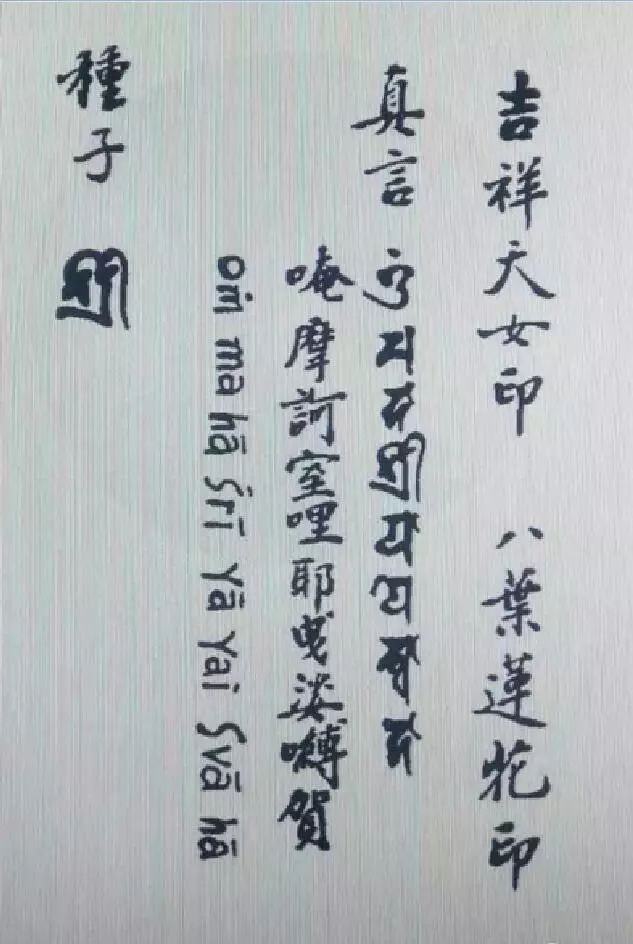 吉祥天女印 八葉蓮花印
真言 𑖌𑖼 𑖦 𑖮𑖯 𑖫𑖿𑖨𑖱 𑖧𑖯 𑖧𑖹 𑖭𑖿𑖪𑖯 𑖮𑖯
唵摩訶室哩耶曳娑嚩賀
oṁ ma hā śrī yā yai svā hā
種子 𑖫𑖿𑖨𑖱